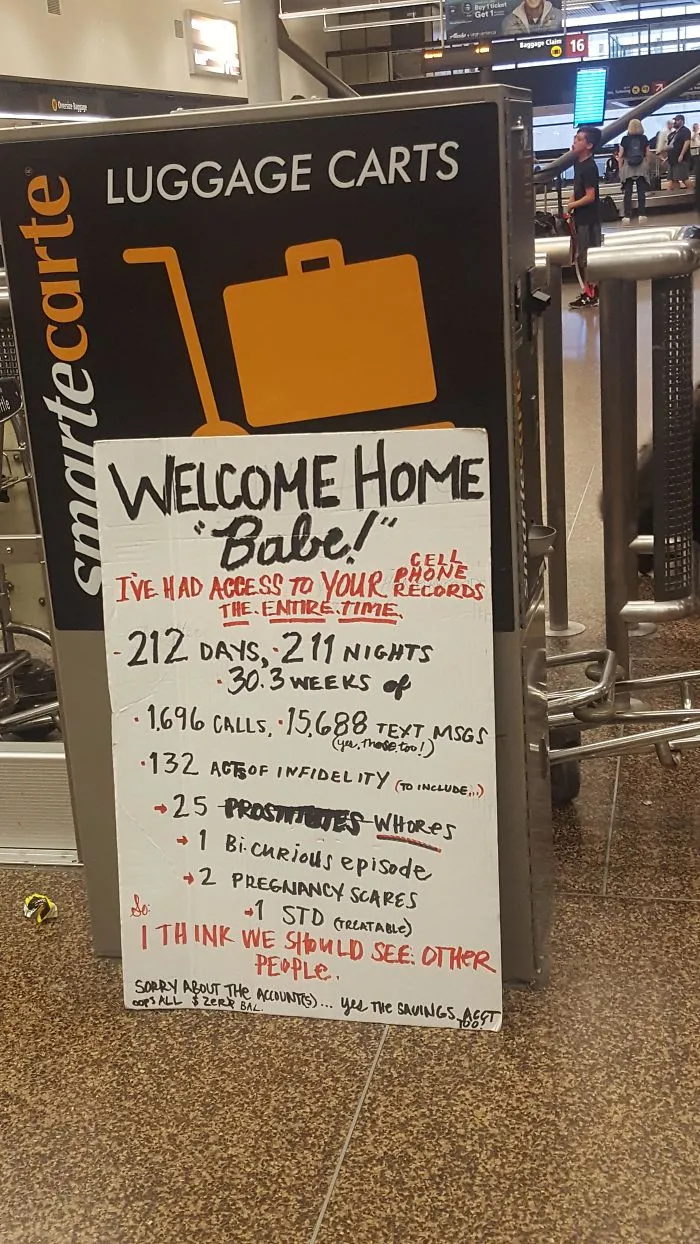 Buy 1 ticket
Get 1
Alaska
Baggage Claim 16
Oversize Baggage
LUGGAGE CARTS
smartecarte
WELCOME HOME
"Babe!"
I'VE HAD ACCESS TO YOUR CELL PHONE RECORDS
THE ENTIRE TIME.
- 212 DAYS, · 211 NIGHTS
· 30.3 WEEKS of
· 1,696 CALLS, · 15,688 TEXT MSGS
(yes, those too!)
· 132 ACTS OF INFIDELITY (TO INCLUDE...)
→ 25 PROSTITUTES WHORES
→ 1 Bi-curious episode
→ 2 PREGNANCY SCARES
→ 1 STD (TREATABLE)
So:
I THINK WE SHOULD SEE OTHER
PEOPLE.
SORRY ABOUT THE ACCOUNT(S)... yes THE SAVINGS ACCT
oops ALL $ ZERO BAL. TOO!